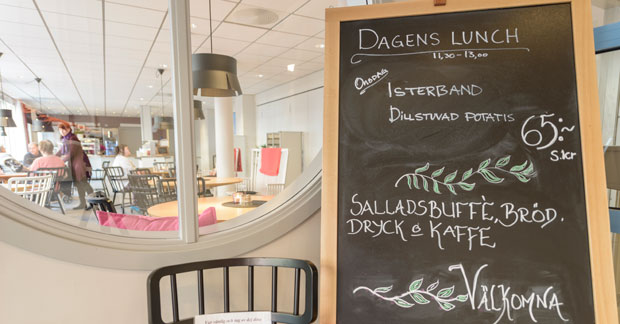 DAGENS LUNCH
11,30-13,00
ONSDAG
ISTERBAND
DILLSTUVAD POTATIS
65:-
S.kr
SALLADSBUFFÈ, BRÖD,
DRYCK & KAFFE
VÄLKOMNA